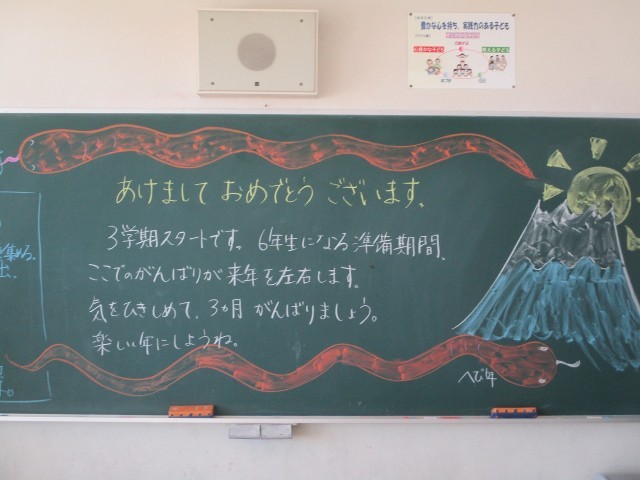 豊かな心を持ち、実践力のある子ども
あけまして おめでとう ございます。
3学期スタートです。 6年生になる準備期間。
ここでのがんばりが来年を左右します。
気をひきしめて、3ヵ月 がんばりましょう。
楽しい年にしようね。
へび年